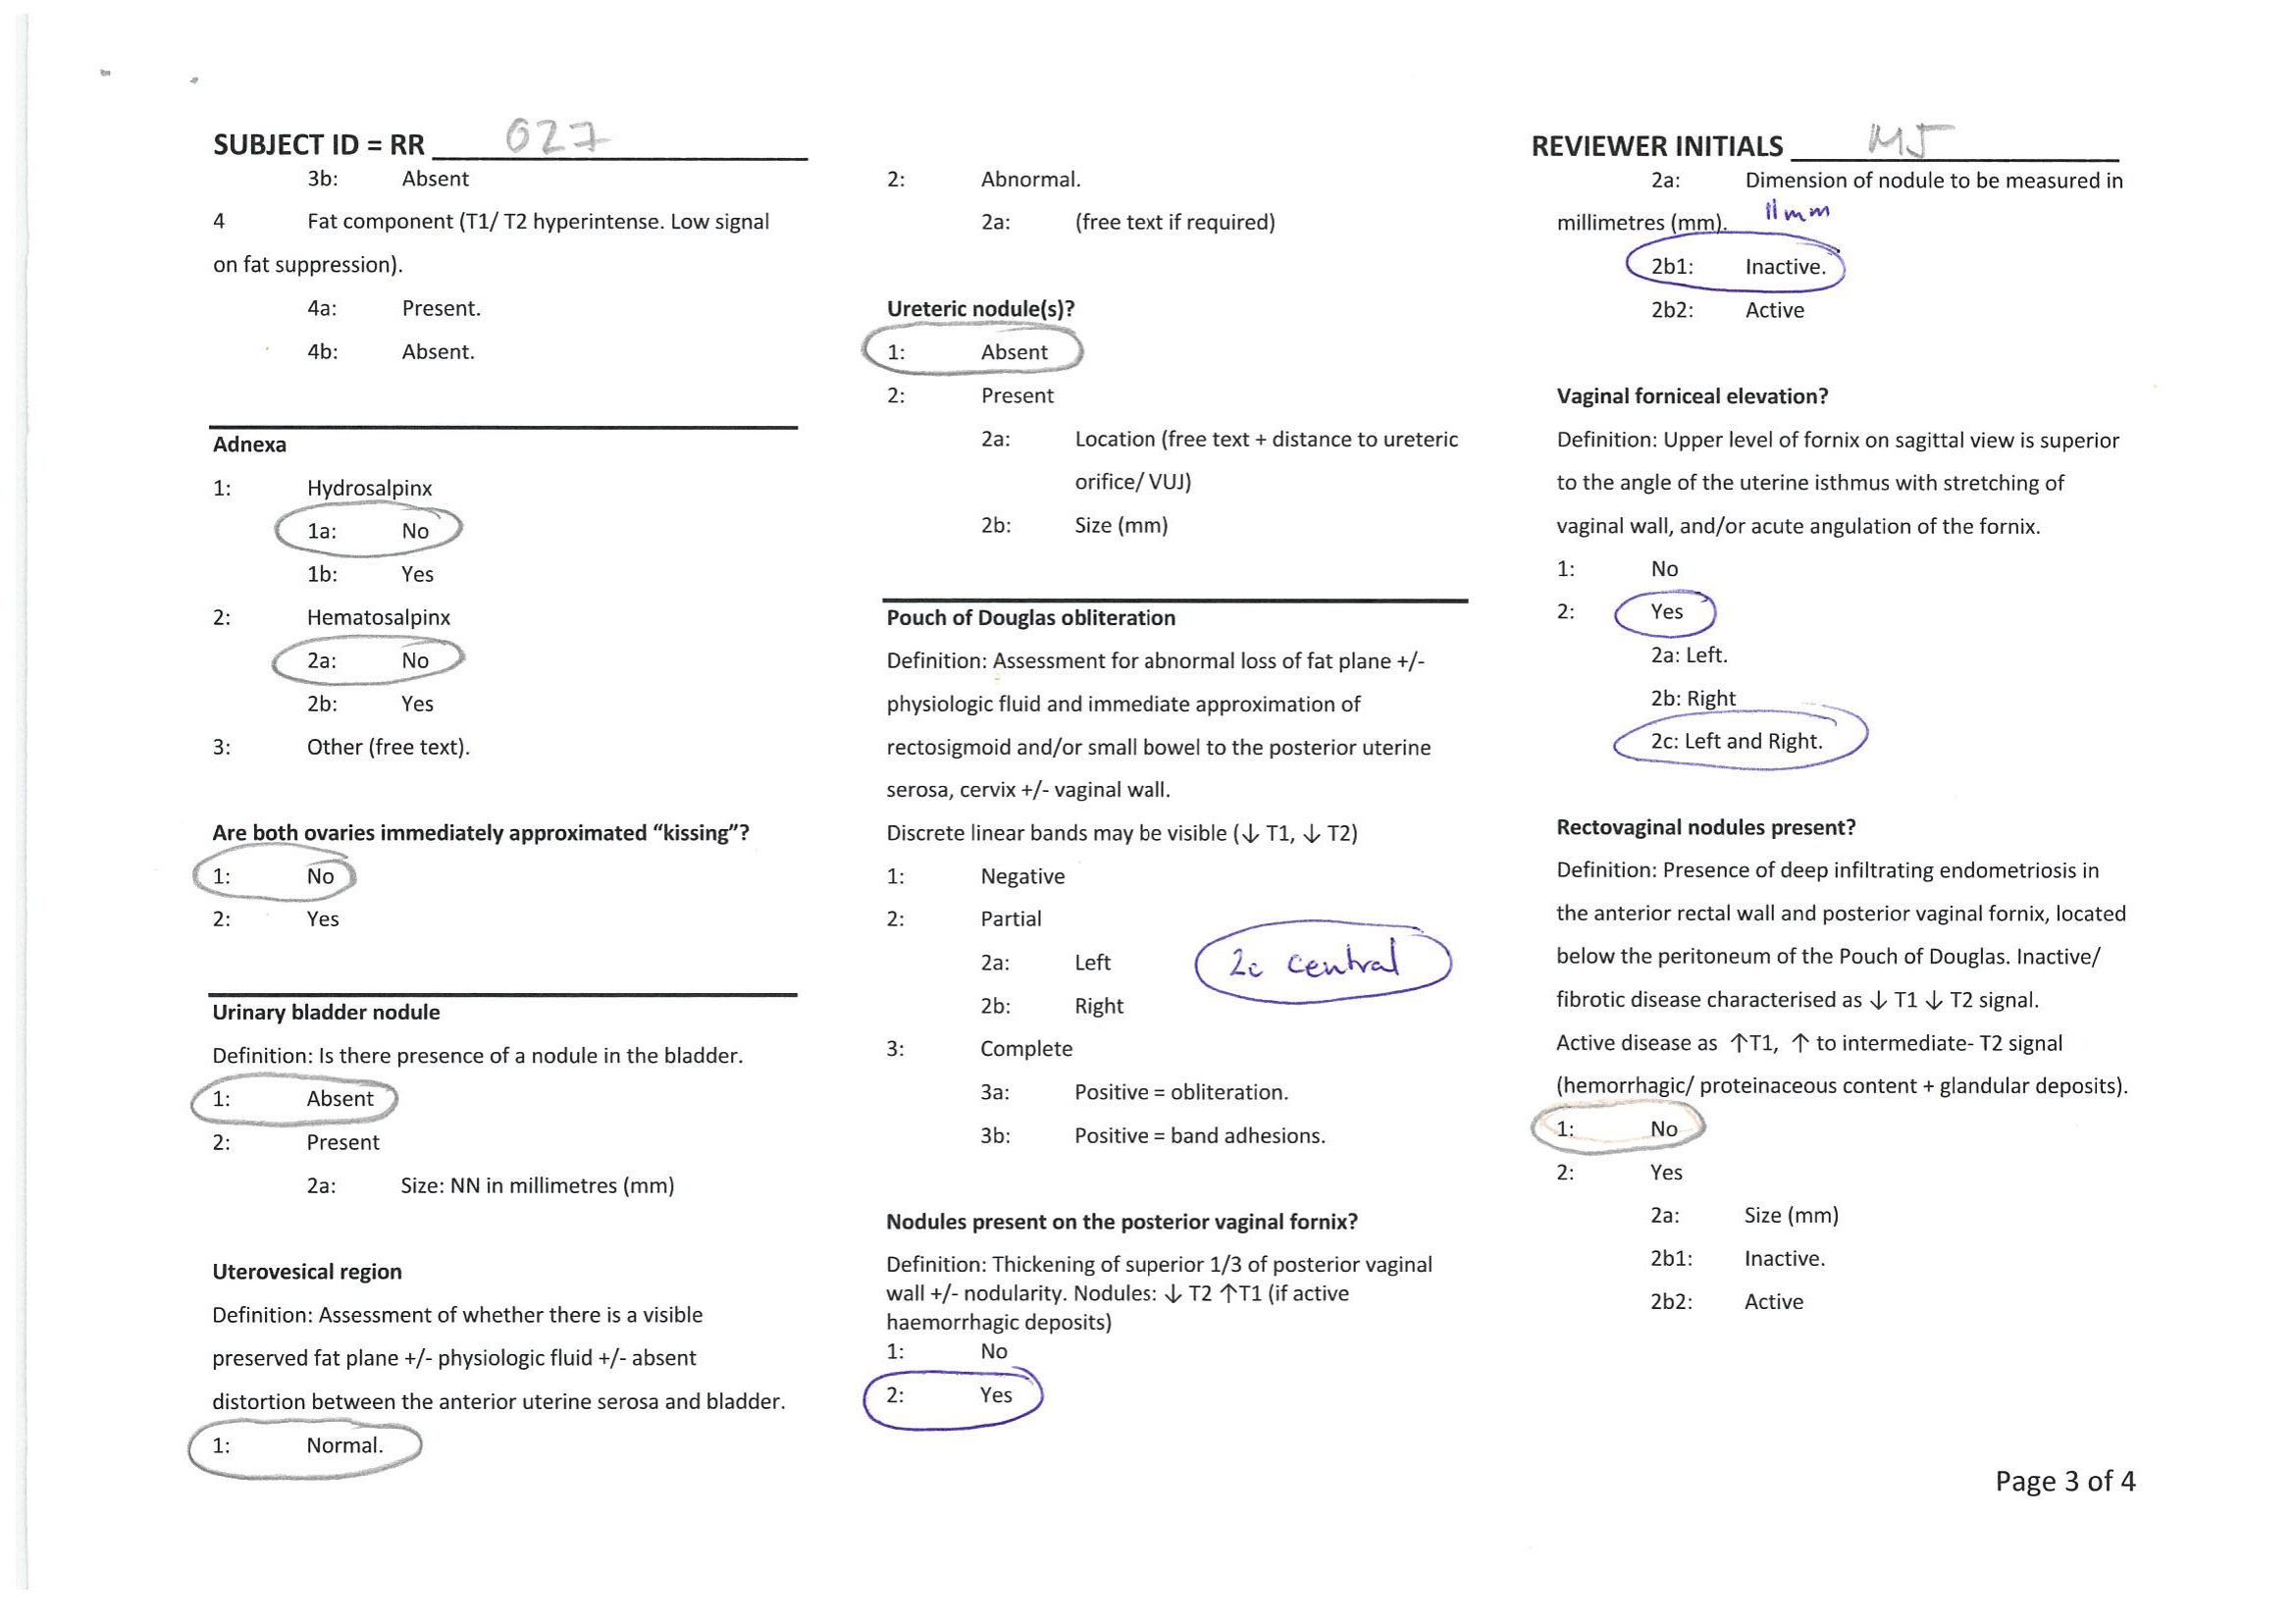 SUBJECT ID = RR 027
3b: Absent
4 Fat component (T1/ T2 hyperintense. Low signal
on fat suppression).
4a: Present.
4b: Absent.
Adnexa
1: Hydrosalpinx
1a: No
1b: Yes
2: Hematosalpinx
2a: No
2b: Yes
3: Other (free text).
Are both ovaries immediately approximated “kissing”?
1: No
2: Yes
Urinary bladder nodule
Definition: Is there presence of a nodule in the bladder.
1: Absent
2: Present
2a: Size: NN in millimetres (mm)
Uterovesical region
Definition: Assessment of whether there is a visible
preserved fat plane +/- physiologic fluid +/- absent
distortion between the anterior uterine serosa and bladder.
1: Normal.
2: Abnormal.
2a: (free text if required)
Ureteric nodule(s)?
1: Absent
2: Present
2a: Location (free text + distance to ureteric
orifice/ VUJ)
2b: Size (mm)
Pouch of Douglas obliteration
Definition: Assessment for abnormal loss of fat plane +/-
physiologic fluid and immediate approximation of
rectosigmoid and/or small bowel to the posterior uterine
serosa, cervix +/- vaginal wall.
Discrete linear bands may be visible (↓ T1, ↓ T2)
1: Negative
2: Partial
2a: Left
2c central
2b: Right
3: Complete
3a: Positive = obliteration.
3b: Positive = band adhesions.
Nodules present on the posterior vaginal fornix?
Definition: Thickening of superior 1/3 of posterior vaginal
wall +/- nodularity. Nodules: ↓ T2 ↑T1 (if active
haemorrhagic deposits)
1: No
2: Yes
REVIEWER INITIALS MJ
2a: Dimension of nodule to be measured in
millimetres (mm). 11mm
2b1: Inactive.
2b2: Active
Vaginal forniceal elevation?
Definition: Upper level of fornix on sagittal view is superior
to the angle of the uterine isthmus with stretching of
vaginal wall, and/or acute angulation of the fornix.
1: No
2: Yes
2a: Left.
2b: Right
2c: Left and Right.
Rectovaginal nodules present?
Definition: Presence of deep infiltrating endometriosis in
the anterior rectal wall and posterior vaginal fornix, located
below the peritoneum of the Pouch of Douglas. Inactive/
fibrotic disease characterised as ↓ T1 ↓ T2 signal.
Active disease as ↑T1, ↑ to intermediate- T2 signal
(hemorrhagic/ proteinaceous content + glandular deposits).
1: No
2: Yes
2a: Size (mm)
2b1: Inactive.
2b2: Active
Page 3 of 4